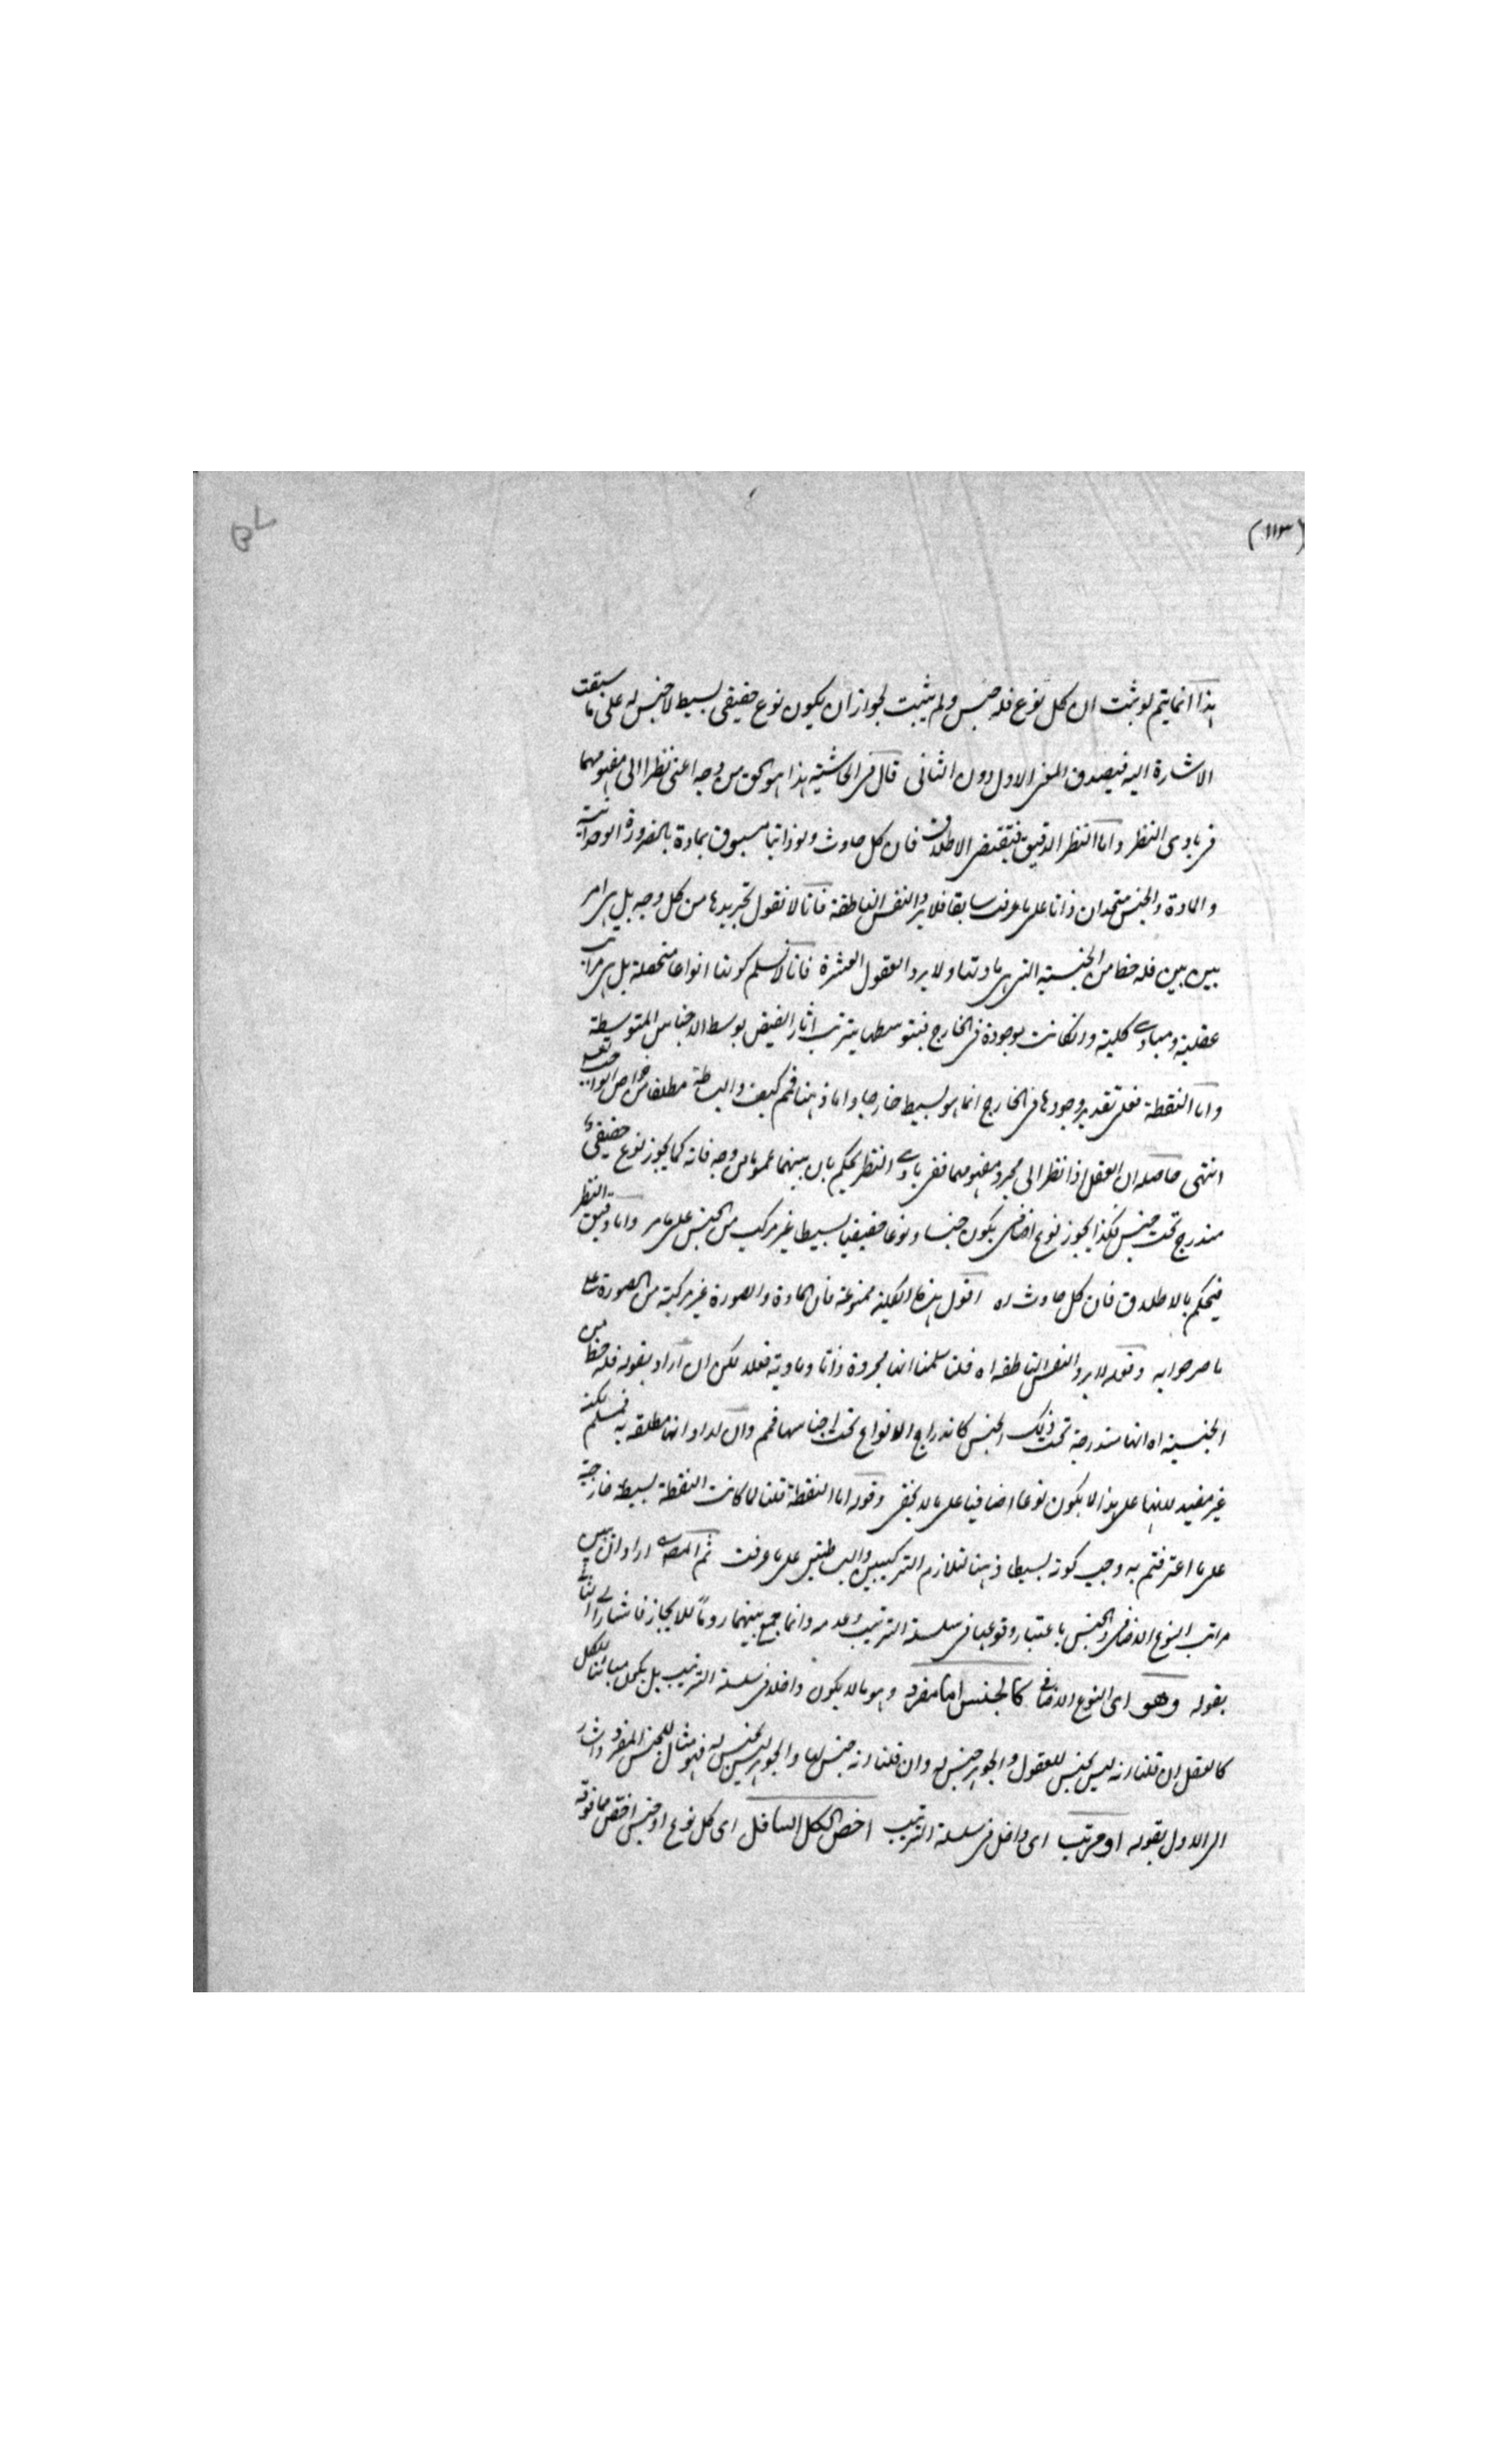 (١١٣)
هذا انما يتم لو ثبت ان كل نوع فله جنس ولم يثبت لجواز ان يكون نوع حقيقي بسيط لا جنس له على ما سبقت
الاشارة اليه فيصدق المعنى الاول دون الثاني قال في الحاشية هذا هو الحق من وجه اعنى نظرا الى مفهومهما
في بادى النظر واما النظر الدقيق فيقتضى الاطلاق فان كل حادث ولو ذاتيا مسبوق بمادة بالضرورة الوجدانية
والمادة والجنس متحدان ذاتا على ما عرفت سابقا فلا يرد النفس الناطقة فانا لا نقول بتجريدها من كل وجه بل هى امر
بين بين فله حظ من الجنسية التى هى مادتها ولا يرد العقول العشرة فانا لا نسلم كونها انواعا متحصلة بل هى مراتب
عقلية ومبادى كلية وان كانت موجودة في الخارج فبتوسطها يترتب اثار الفيض بوسط الاجناس المتوسطة
واما النقطة فعلى تقدير وجودها في الخارج انما هو بسيط خارجا واما ذهنا فمم كيف والبساطة مطلقا من خواص الواجب تعالى
انتهى حاصله ان العقل اذا نظر الى مجرد مفهومهما ففى بادى النظر يحكم بان بينهما عموما من وجه فانه كما يجوز نوع حقيقى
مندرج تحت جنس فكذا يجوز نوع اضافى يكون جنسا ونوعا حقيقيا بسيطا غير مركب من الجنس على ما مر واما دقيق النظر
فيحكم بالاطلاق فان كل حادث اه اقول هذه الكلية ممنوعة فان المادة والصورة غير مركبة من الصورة على
ما صرحوا به وقوله لا يرد النفس الناطقة اه قلنا سلمنا انها مجردة ذاتا ومادية فعلا لكن ان اراد بقوله فله حظ من
الجنسية اه انها مندرجة تحت ذلك الجنس كاندراج الانواع تحت اجناسها فمم وان اراد انها متعلقة به فمسلم لكنه
غير مفيد لانها على هذا لا يكون نوعا اضافيا على ما لا يخفى وقوله اما النقطة قلنا لما كانت النقطة بسيطة خارجية
على ما اعترفتم به وجب كونه بسيطا ذهنا لتلازم التركيبين والبساطتين على ما عرفت ثم المصـ اراد ان يبين
مراتب النوع الاضافى والجنس باعتبار وقوعهما في سلسلة الترتيب وعدمه وانما جمع بينهما روما للايجاز فاشار الى الثانى
بقوله وهو اى النوع الاضافى كالجنس اما مفرد وهو ما لا يكون داخلا في سلسلة الترتيب بل يكون مباينا للكل
كالعقل ان قلنا انه ليس بجنس للعقول والجوهر جنس له وان قلنا انه جنس لها والجوهر ليس بجنس له فهو مثال للجنس المفرد واشار
الى الاول بقوله او مرتب اى داخل في سلسلة الترتيب اخص الكل السافل اى كل نوع او جنس اخص مما فوقه